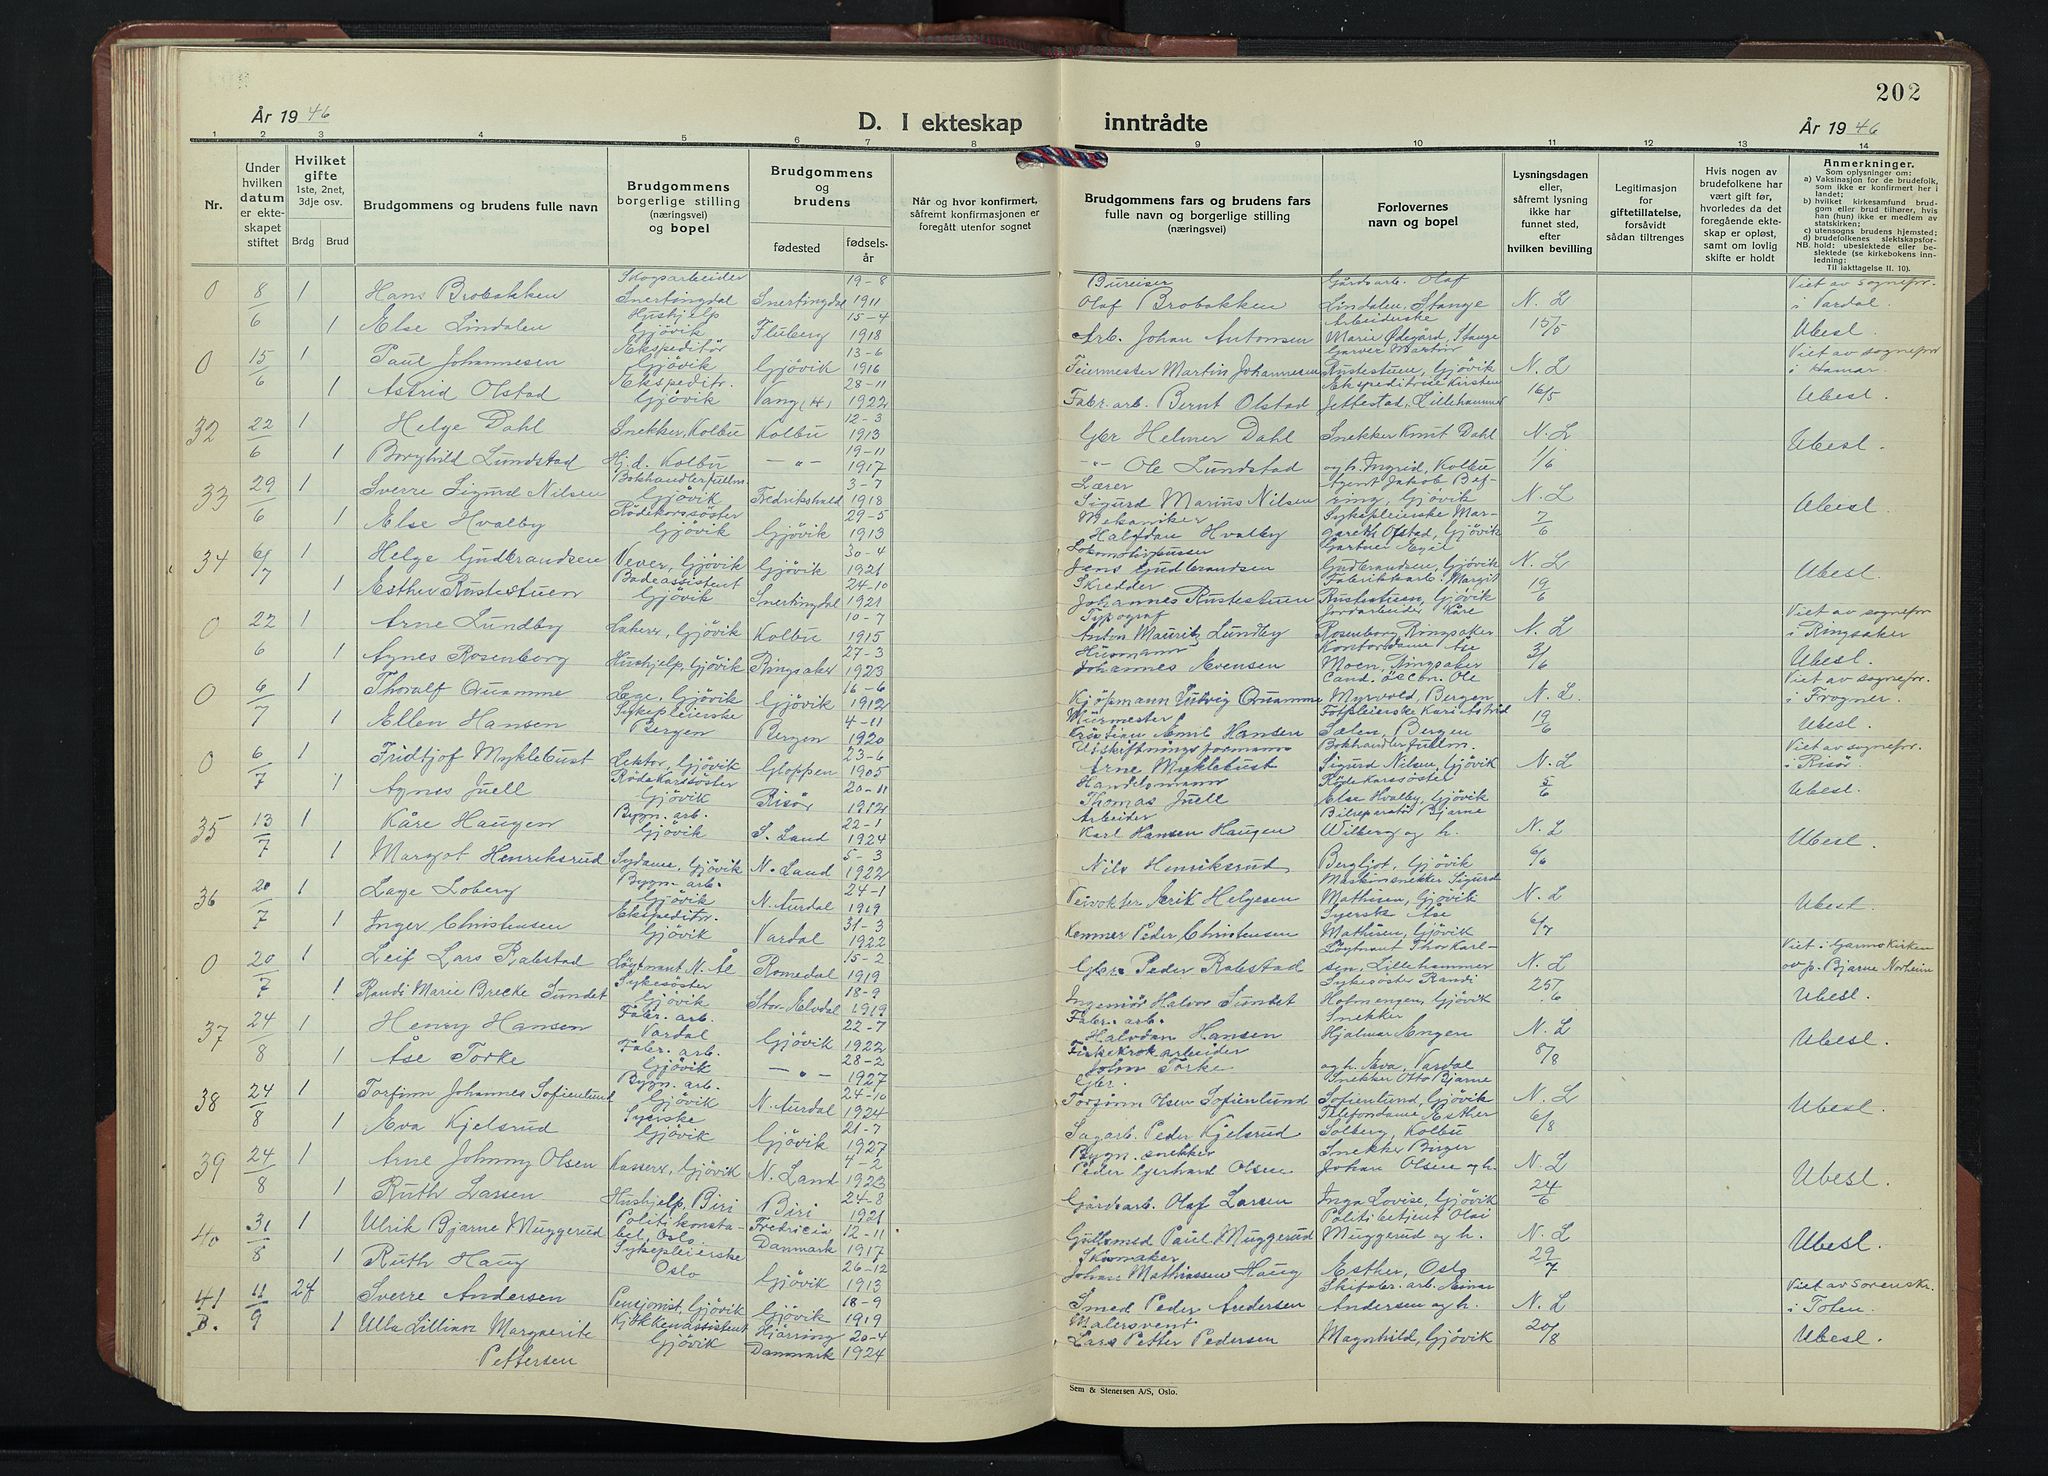 202
År 1946
D. I ekteskap inntrådte
År 1946
1 2 3 4 5 6 7 8 9 10 11 12 13 14
Nr.
Under hvilken datum er ekteskapet stiftet
Hvilket gifte 1ste, 2net, 3dje osv.
Brdg Brud
Brudgommens og brudens fulle navn
Brudgommens borgerlige stilling (næringsvei) og bopel
Brudgommens og brudens
fødested
fødselsår
Når og hvor konfirmert, såfremt konfirmasjonen er foregått utenfor sognet
Brudgommens fars og brudens fars fulle navn og borgerlige stilling (næringsvei)
Forlovernes navn og bopel
Lysningsdagen eller, såfremt lysning ikke har funnet sted, efter hvilken bevilling
Legitimasjon for giftetillatelse, forsåvidt sådan tiltrenges
Hvis nogen av brudefolkene har vært gift før, hvorledes da det foregående ekteskap er opløst, samt om lovlig skifte er holdt
Anmerkninger.
Som oplysninger om:
a) Vaksinasjon for de brudefolk, som ikke er konfirmert her i landet;
b) hvilket kirkesamfund brudgom eller brud tilhører, hvis han (hun) ikke er medlem av statskirken;
c) utensogns brudens hjemsted;
d) brudefolkenes slektskapsforhold: ubeslektede eller beslektede (se kirkebokens innledning:
NB. Til iakttagelse II. 10).
0 8/6 1 Hans Brobakken Skogsarbeider Snertingdal Snertingdal 19-8 1911 Bureiser Olaf Brobakken Gårdsarb. Olaf Lindalen, Stange N. L Viet av sognepr. i Vardal.
1 Else Lindalen Hushjelp Gjövik Fluberg 15-4 1918 Arb. Johan Antonsen Arbeiderske Marie Ødegård, Stange 15/5 Ubesl.
0 15/6 1 Paul Johannesen Ekspeditör Gjövik Gjövik 13-6 1916 Feiermester Martin Johannesen Garver Martin Rustestuen, Gjövik N. L Viet av sognepr i Hamar.
1 Astrid Olstad Ekspeditr. Gjövik Vang (H) 28-11 1922 Fabr. arb. Bernt Olstad Ekspeditrise Kirsten Jettestad, Lillehammer 16/5 Ubesl.
32 22/6 1 Helge Dahl Snekker, Kolbu Kolbu 12-3 1913 Gbr Helmer Dahl Snekker Knut Dahl N. L Ubesl.
1 Borghild Lundstad Hj. d. Kolbu -"- 19-11 1917 -"- Ole Lundstad og h. Ingrid, Kolbu 1/6
33 29/6 1 Sverre Sigurd Nilsen Bokhandlerfullm. Gjövik Fredrikshald 3-7 1918 Lærer Sigurd Marius Nilsen Agent Jakob Befring, Gjövik N. L Ubesl.
1 Else Hvalby Rödekorssöster Gjövik Gjövik 29-5 1913 Mekaniker Halfdan Hvalby Sykepleierske Margareth Olstad, Gjövik 7/6
34 6/7 1 Helge Gudbrandsen Vever, Gjövik Gjövik 30-4 1921 Jens Gudbrandsen Gartner Egil Gudbrandsen, Gjövik N. L Ubesl.
1 Esther Rustestuen Badeassistent Gjövik Snertingdal 24-10 1921 Skredder Johannes Rustestuen Fabrikkarb. Margit Rustestuen, Gjövik 19/6
0 22/6 1 Arne Lundby Gjövik Kolbu 10-7 1915 Typograf Anton Mauritz Lundby Jordarbeider Kåre Rosenborg, Ringsaker N. L Viet av sognepr i Ringsaker
1 Agnes Rosenborg Hushjelp, Gjövik Ringsaker 27-3 1923 Husmann Johannes Evensen Kontordame Åse Moen, Ringsaker 3/6 Ubesl.
0 6/7 1 Thoralf Quamme Lege, Gjövik Gjövik 16-6 1912 Kjöpmann Ludvig Quamme Cand. öecon. Ole Myrvold, Bergen N. L. Viet av sognepr. i Frogner.
1 Ellen Hansen Sykepleierske Bergen Bergen 4-11 1920 Murmester Kristian Emil Hansen Fotpleierske Kari Astrid Sælen, Bergen 19/6 Ubesl.
0 6/7 1 Fridtjof Myklebust Lektor, Gjövik Gloppen 23-6 1905 Utskiftningsformann Arne Myklebust Bokhandlerfullm. Sigurd Nilsen, Gjövik N. L Viet av sognepr. i Risör.
1 Agnes Juell Rödekorssöster Gjövik Risör 20-11 1912 Handelsmann Thomas Juell Rödekorssöster Else Hvalby, Gjövik 5/6 Ubesl.
35 13/7 1 Kåre Haugen Bygn. arb. Gjövik S. Land 22-1 1924 Arbeider Karl Hansen Haugen Bilreparatör Bjarne Wilberg og h. N. L Ubesl.
1 Margot Henriksrud Sydame, Gjövik N. Land 5-3 1922 Nils Henriksrud Bergljot, Gjövik 6/6
36 20/7 1 Lage Loberg Bygn. arb. Gjövik N. Aurdal 24-1 1919 Veivokter Erik Helgesen Maskinsnekker Sigurd Mathisen, Gjövik N. L Ubesl.
1 Inger Christensen Ekspeditr. Gjövik Vardal 31-3 1922 Kemner Peder Christensen Syersk Åse Mathisen, Gjövik 6/7
0 20/7 1 Leif Lars Rabstad Löytnant N. Ål Romedal 15-2 1919 Gbr. Peder Rabstad Löytnant Thor Karlsen, Lillehammer N. L Viet i Garmokirken av p. Bjarne Norheim
1 Randi Marie Brecke Sundet Sykesöster Gjövik Stor-Elvdal 18-9 1919 Ingeniör Halvor Sundet Sykesöster Randi Holmengen, Gjövik 25/6 Ubesl.
37 24/8 1 Henry Hansen Fabr. arb. Vardal Gjövik 22-7 1922 Fabr. arb. Halvdan Hansen Snekker Hjalmar Engen N. L Ubesl.
1 Åse Torke Fabr. arb. Gjövik -"- 28-2 1927 Fiskekrokarbeider John Torke og h. Eva, Vardal 8/8
38 24/8 1 Torfinn Johannes Sofienlund Bygn. arb. Gjövik N. Aurdal 24-10 1924 Gbr. Torfinn Olsen Sofienlund Snekker Otto Bjarne Sofienlund, Gjövik N. L Ubesl.
1 Eva Kjelsrud Syerske Gjövik Gjövik 21-7 1927 Sagarb. Peder Kjelsrud Telefondame Esther Solberg, Kolbu 6/8
39 24/8 1 Arne Johnny Olsen Kasserer, Gjövik N. Land 4-2 1923 Bygn. snekker Peder Gerhard Olsen Snekker Birger Johan Olsen og h. N. L Ubesl.
1 Ruth Larsen Hushjelp, Biri Biri 24-8 1921 Gårdsarb. Olaf Larsen Inga Lovise, Gjövik 24/6
40 31/8 1 Ulrik Bjarne Muggerud Politikonstabel, Oslo Fredricia Danmark 12-11 1917 Gullsmed Paul Muggerud Politibetjent Olai Muggerud og h. N. L Ubesl.
1 Ruth Haug Sykepleierske Oslo Gjövik 26-12 1913 Skomaker Johan Mathiassen Haug Esther, Oslo 29/7
41 B. 11/9 2g Sverre Andersen Pensjonist, Gjövik Gjövik 18-9 1919 Smed Peder Andersen Skifabr. arb. Einar Andersen og h. N. L Viet av sorenskr. i Toten.
1 Ulla Lillian Marguerite Pettersen Kjökkenassistent Gjövik Hjörring Danmark 20-4 1924 Malersvent Lars Petter Pedersen Magnhild, Gjövik 20/8 Ubesl.
Sem & Stenersen A/S, Oslo.